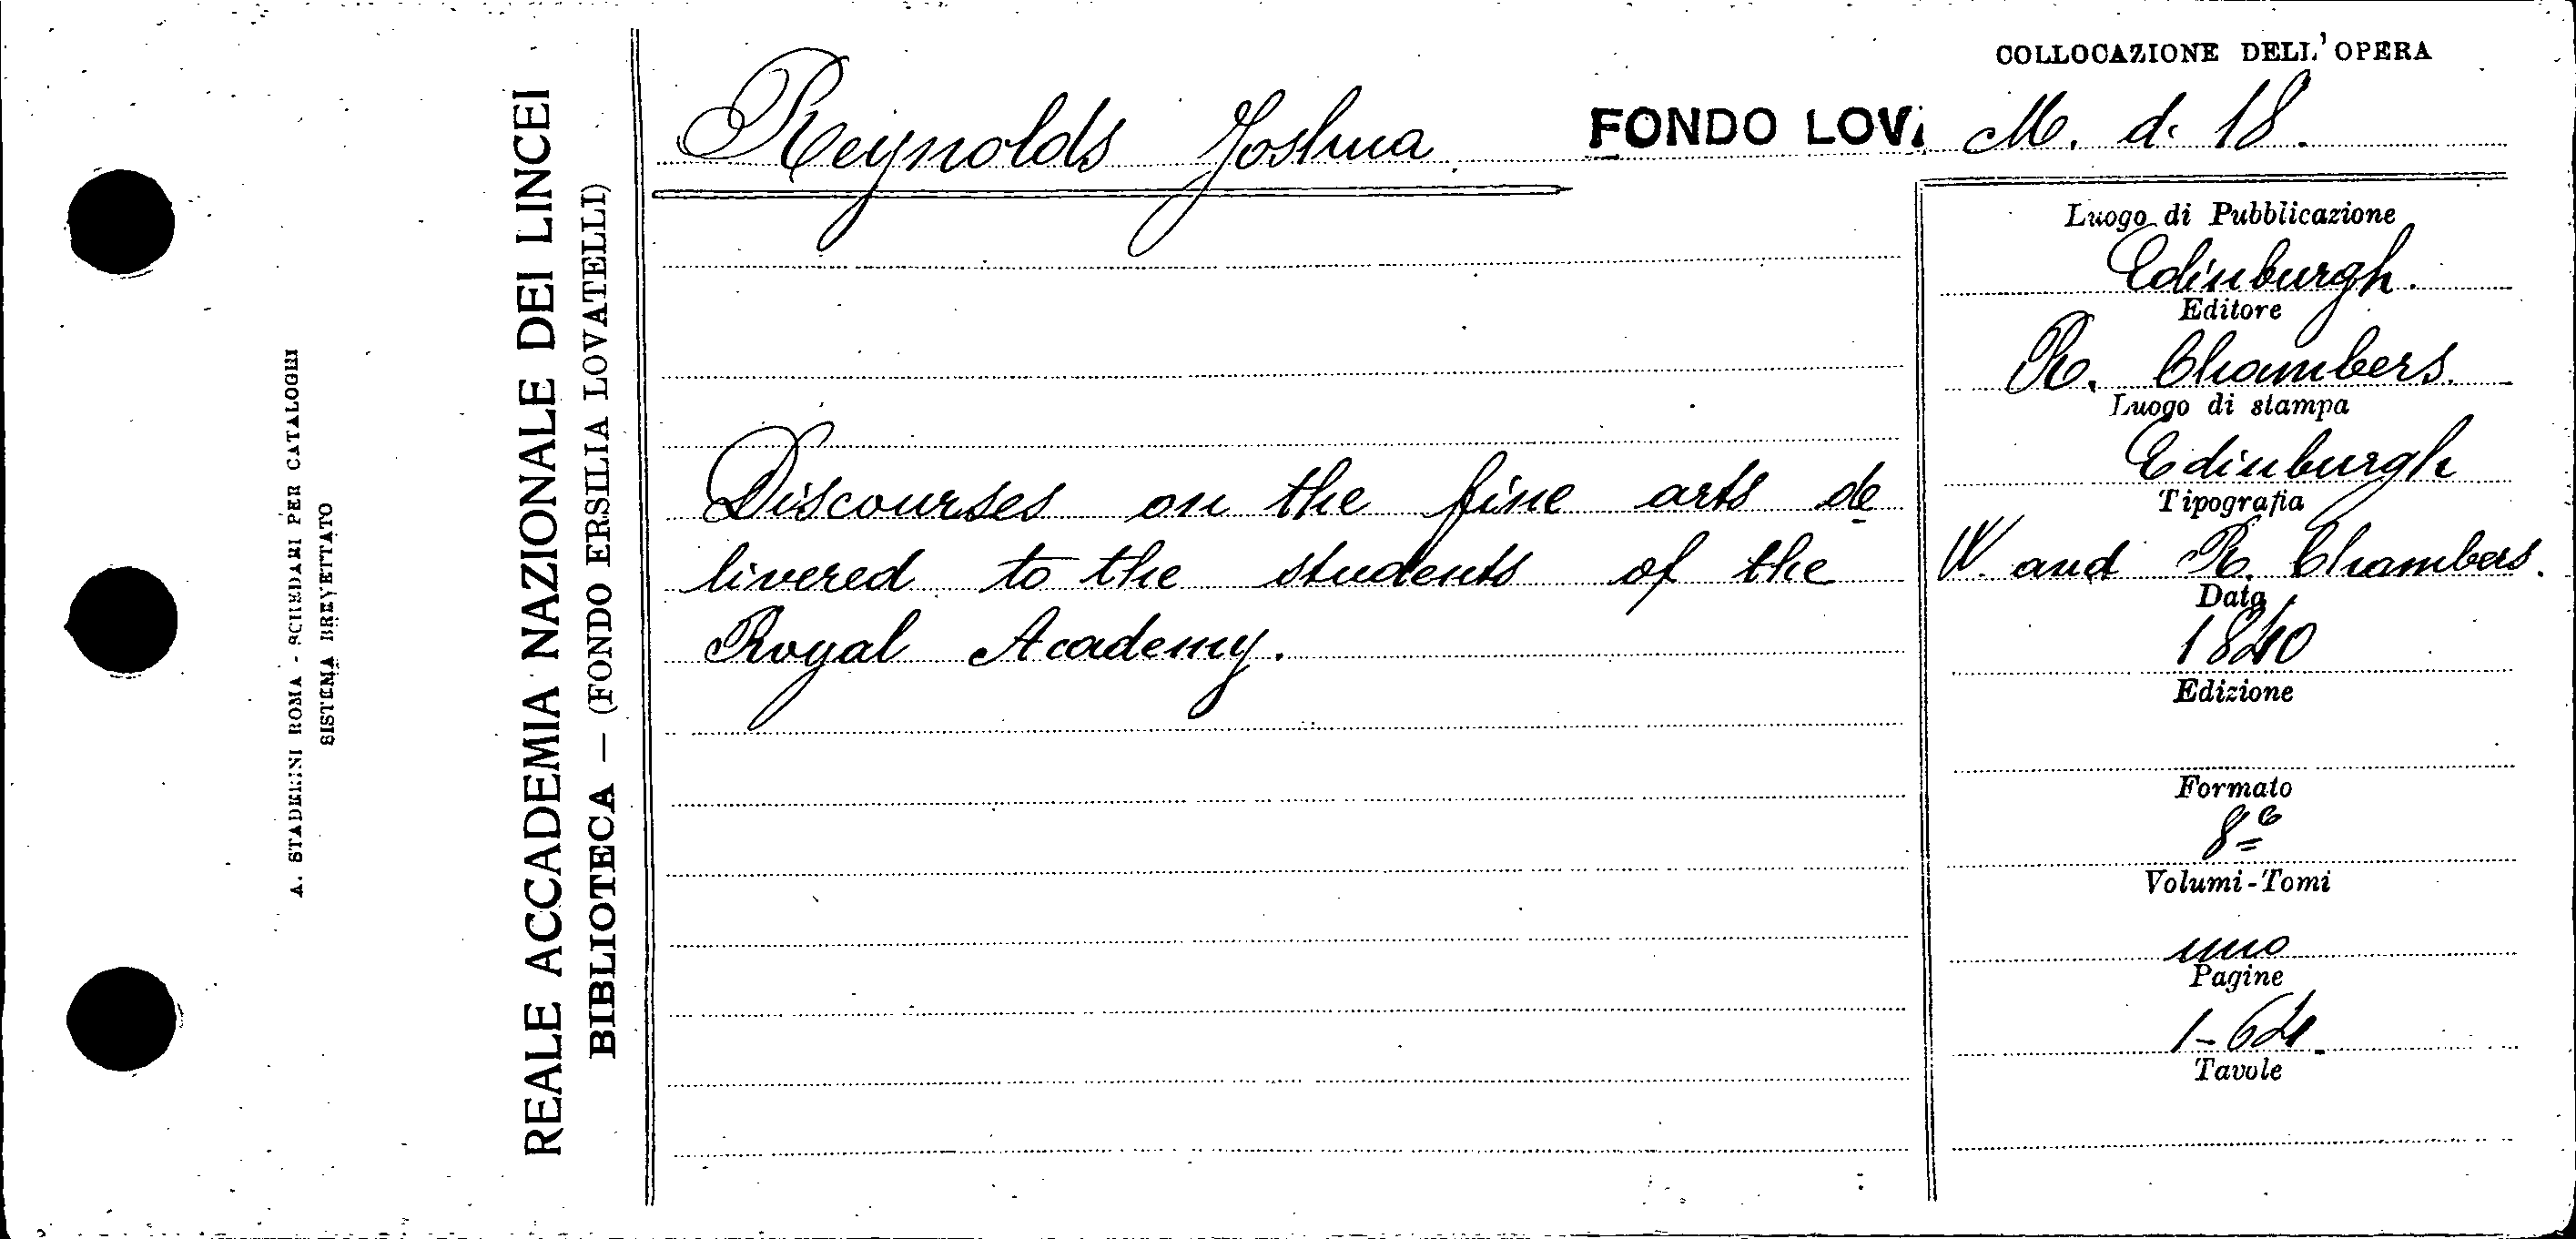 COLLOCAZIONE DELL'OPERA
Reynolds Joshua.
FONDO LOV.
M. d. 18.
Discourses on the fine arts de
livered to the students of the
Royal Academy.
Luogo di Pubblicazione
Edinburgh.
Editore
R. Chambers.
Luogo di stampa
Edinburgh
Tipografia
W. and R. Chambers.
Data
1840
Edizione
Formato
8º
Volumi-Tomi
uno
Pagine
1-64.
Tavole
REALE ACCADEMIA NAZIONALE DEI LINCEI
BIBLIOTECA — (FONDO ERSILIA LOVATELLI)
A. STADERINI ROMA - SCHEDARI PER CATALOGHI
SISTEMA BREVETTATO